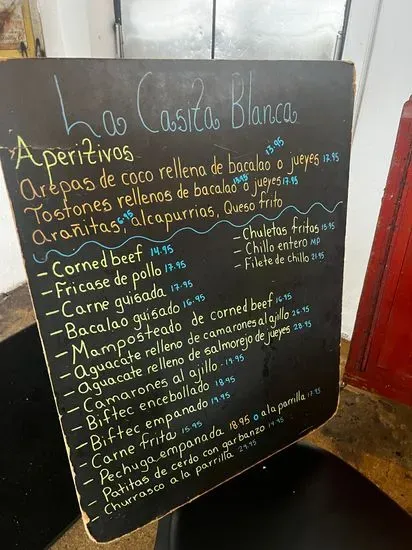 La Casita Blanca
Aperitivos
Arepas de coco rellena de bacalao 13.95 o jueyes 17.95
Tostones rellenos de bacalao o jueyes 17.95
Arañitas, 6.95 alcapurrias, Queso frito
- Corned beef 14.95
- Fricase de pollo 17.95
- Carne guisada 17.95
- Bacalao guisado 16.95
- Mamposteado de corned beef 16.95
- Aguacate relleno de camarones al ajillo 26.95
- Aguacate relleno de salmorejo de jueyes 28.95
- Camarones al ajillo - 19.95
- Biftec encebollado 18.95
- Biftec empanado 19.95
- Carne frita 15.95
- Pechuga empanada 18.95 o a la parrilla 17.95
- Patitas de cerdo con garbanzo 19.95
- Churrasco a la parrilla 29.95
- Chuletas fritas 15.95
- Chillo entero MP
- Filete de chillo 21.95